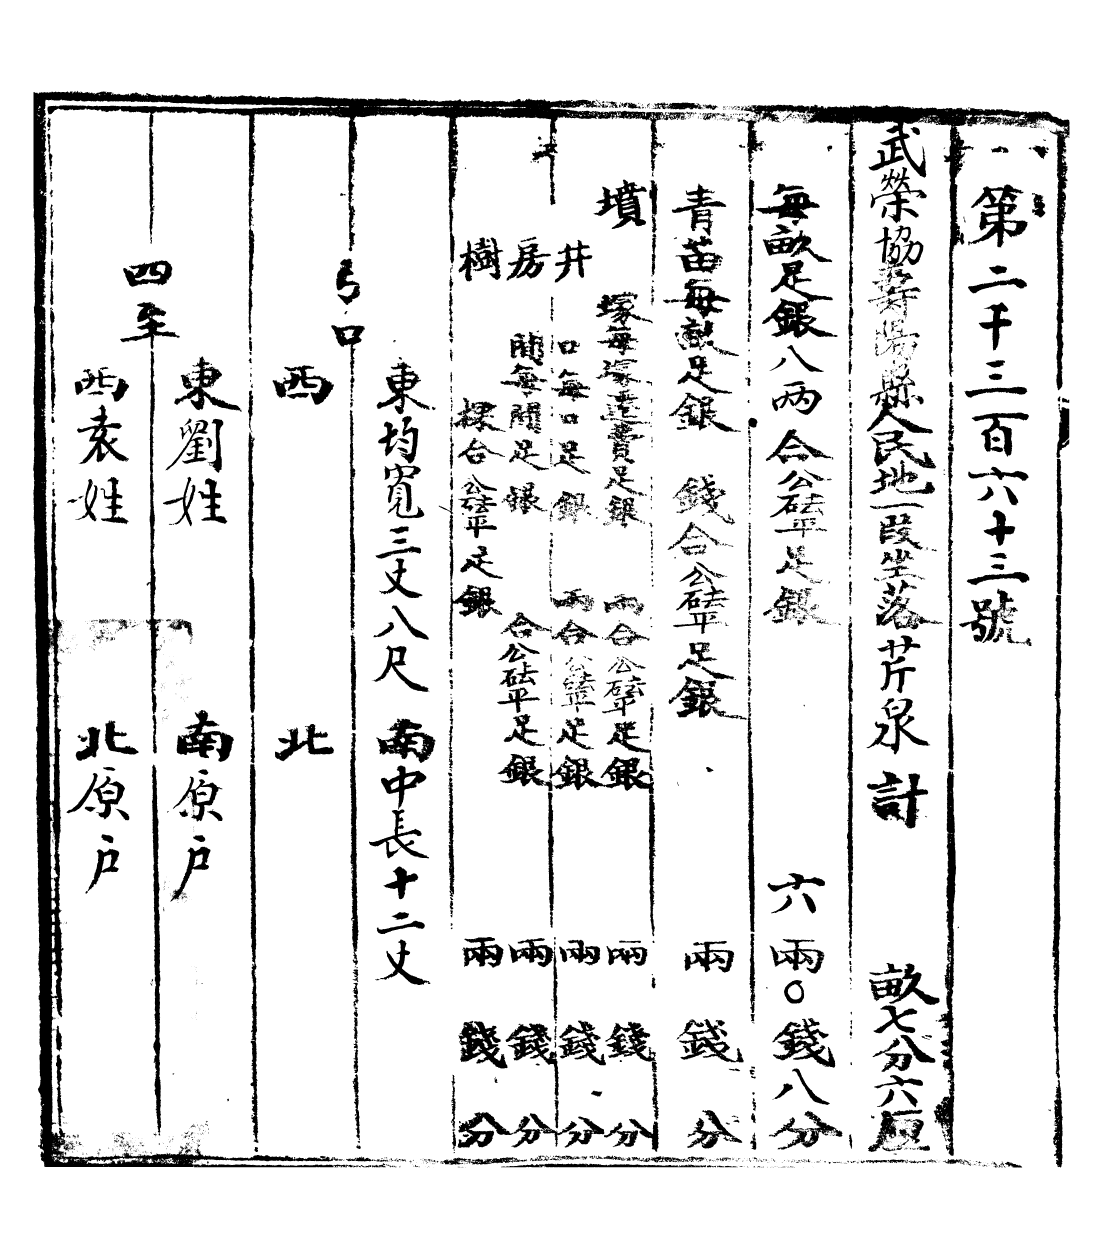 第二千三百六十三號
武榮協壽陽縣人民地一段坐落芹泉 計 畝七分六厘
每畝足銀八兩 合公砝平足銀 六兩〇錢八分
青苗每畝足銀 錢合公砝平足銀 兩 錢 分
墳 塚每塚遷費足銀 兩合公砝平足銀 兩 錢 分
井 口每口足銀 兩合公砝平足銀 兩 錢 分
房 間每間足銀 合公砝平足銀 兩 錢 分
樹 棵合公砝平足銀 兩 錢 分
弓口
東均寬三丈八尺 南中長十二丈
西 北
四至
東劉姓 南原戶
西袁姓 北原戶